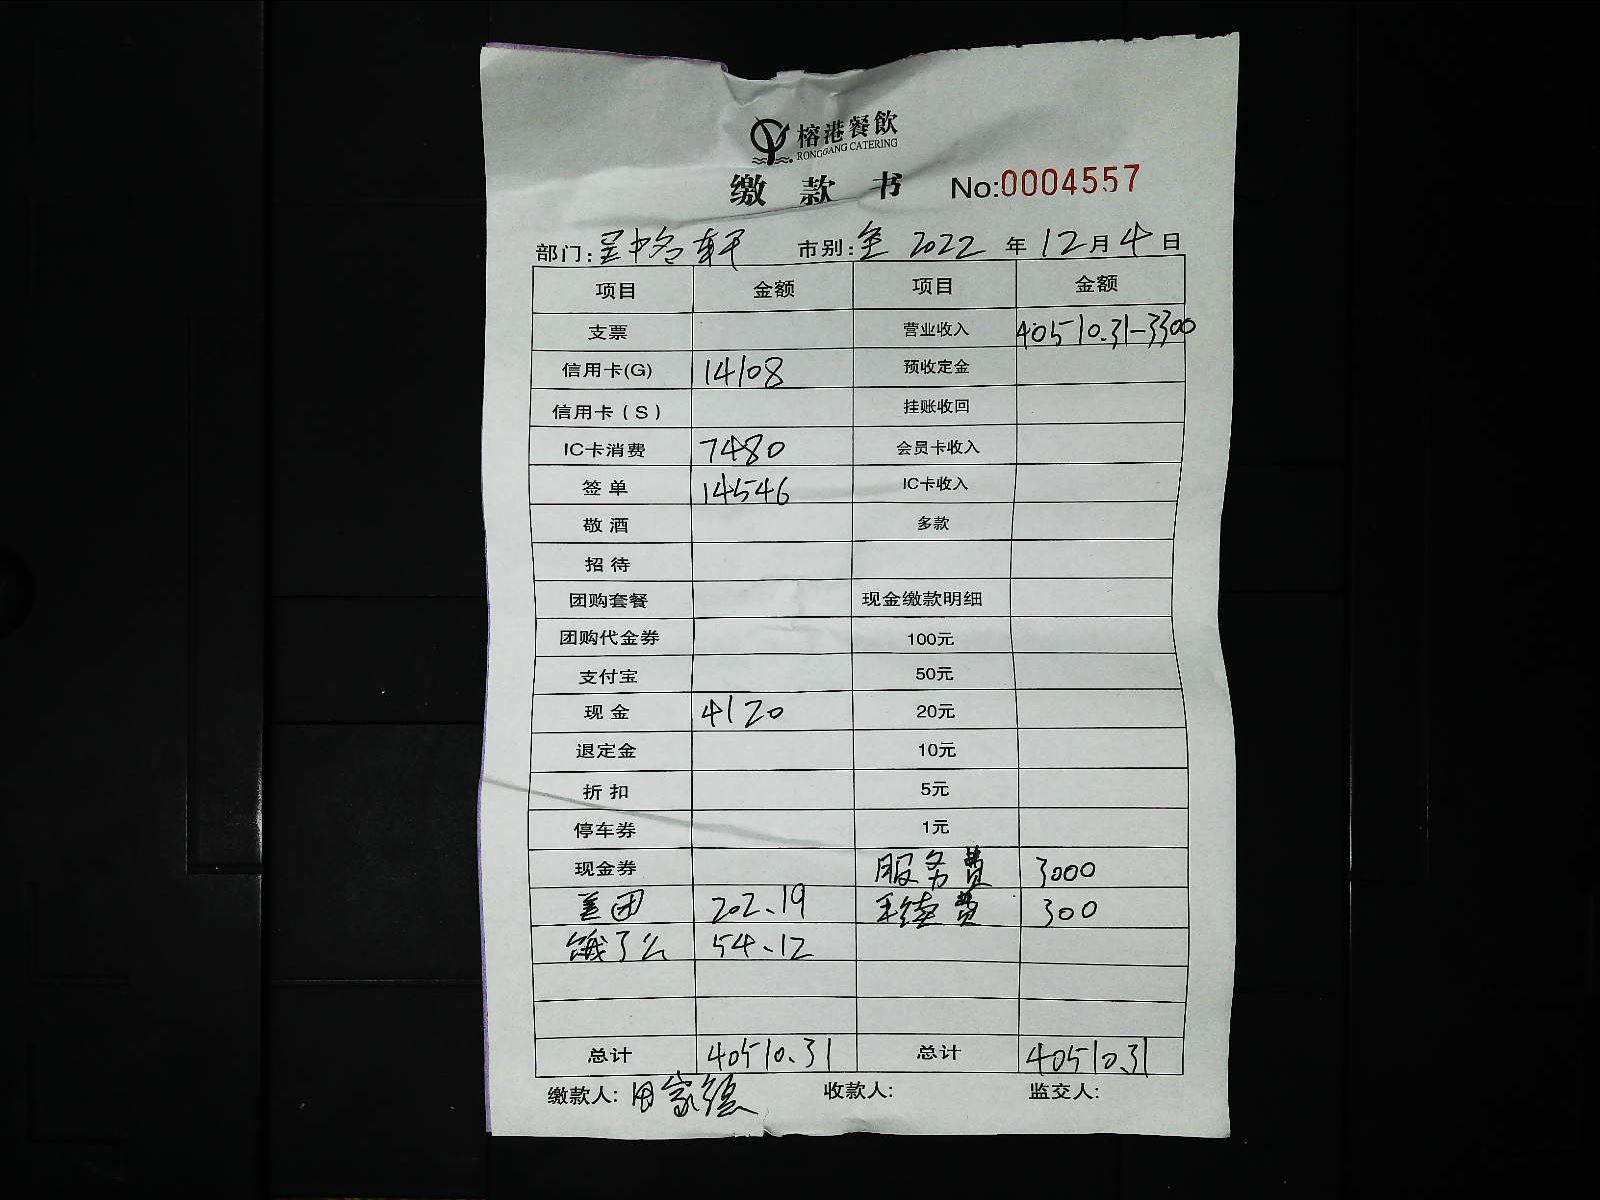 榕港餐飲
RONGGANG CATERING
缴 款 书 No:0004557
部门: 市别:全 2022 年 12 月 4 日
项目 金额 项目 金额
支票 营业收入 40510.31-3300
信用卡(G) 14108 预收定金
信用卡(S) 挂账收回
IC卡消费 7480 会员卡收入
签单 14546 IC卡收入
敬酒 多款
招待
团购套餐 现金缴款明细
团购代金券 100元
支付宝 50元
现金 4120 20元
退定金 10元
折扣 5元
停车券 1元
现金券 服务费 3000
美团 202.19 手续费 300
饿了么 54.12
总计 40510.31 总计 40510.31
缴款人: 收款人: 监交人: